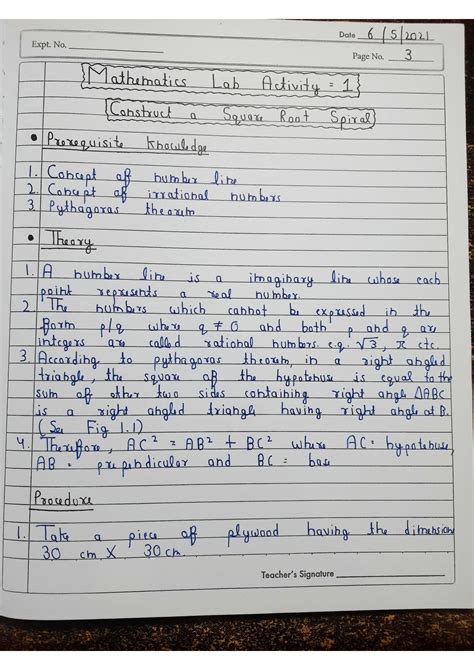 Date 6/5/2021
Expt. No.
Page No. 3
Mathematics Lab Activity = 1
Construct a Square Root Spiral
• Prerequisite Knowledge
1. Concept of number line
2. Concept of irrational numbers
3. Pythagoras theorem
• Theory
1. A number line is a imaginary line whose each
point represents a real number.
2 The numbers which cannot be expressed in the
form p/q where q ≠ 0 and both p and q are
integers are called rational numbers. e.g. √3, π etc.
3. According to pythagoras theorem, in a right angled
triangle, the square of the hypotenuse is equal to the
sum of other two sides containing right angle ΔABC
is a right angled triangle having right angle at B.
(See Fig 1.1)
4. Therefore, AC² = AB² + BC² where AC = hypotenuse,
AB = prependicular and BC = base
Procedure
1. Take a piece of plywood having the dimensions
30 cm X 30 cm.
Teacher's Signature